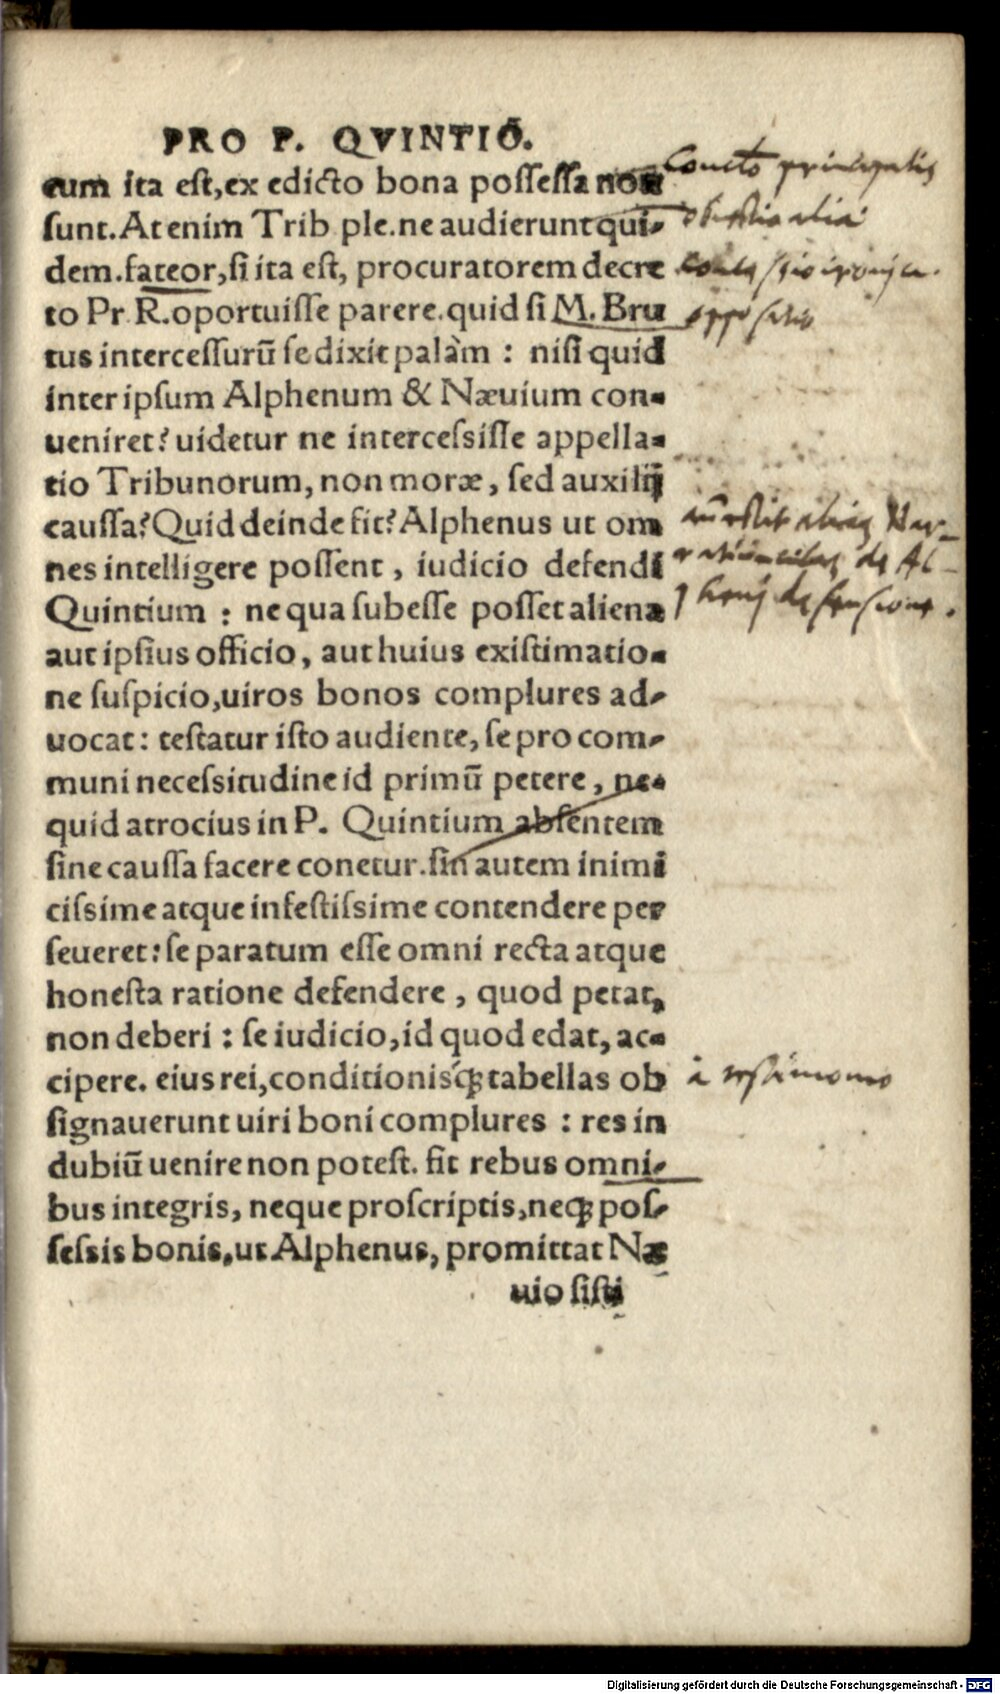 PRO P. QVINTIO.
cum ita est, ex edicto bona possessa non
sunt. At enim Trib ple. ne audierunt qui-
dem. fateor, si ita est, procuratorem decre
to Pr R. oportuisse parere. quid si M. Bru
tus intercessurū se dixit palàm : nisi quid
inter ipsum Alphenum & Næuium con-
ueniret? uidetur ne intercessisse appella-
tio Tribunorum, non moræ, sed auxilij
caussa? Quid deinde fit? Alphenus ut om
nes intelligere possent, iudicio defendi
Quintium : ne qua subesse posset aliena
aut ipsius officio, aut huius existimatio-
ne suspicio, uiros bonos complures ad-
uocat: testatur isto audiente, se pro com-
muni necessitudine id primū petere, ne-
quid atrocius in P. Quintium absentem
sine caussa facere conetur. sin autem inimi
cissime atque infestissime contendere per
seueret: se paratum esse omni recta atque
honesta ratione defendere, quod petat,
non deberi : se iudicio, id quod edat, ac-
cipere. eius rei, conditionisq́ue tabellas ob
signauerunt uiri boni complures : res in
dubiū uenire non potest. fit rebus omni-
bus integris, neque proscriptis, neq; pos-
sessis bonis, ut Alphenus, promittat Næ
uio sisti
principalis
alia
oppositio
de Al-
pheni defensione.
à testimonio
Digitalisierung gefördert durch die Deutsche Forschungsgemeinschaft - DFG